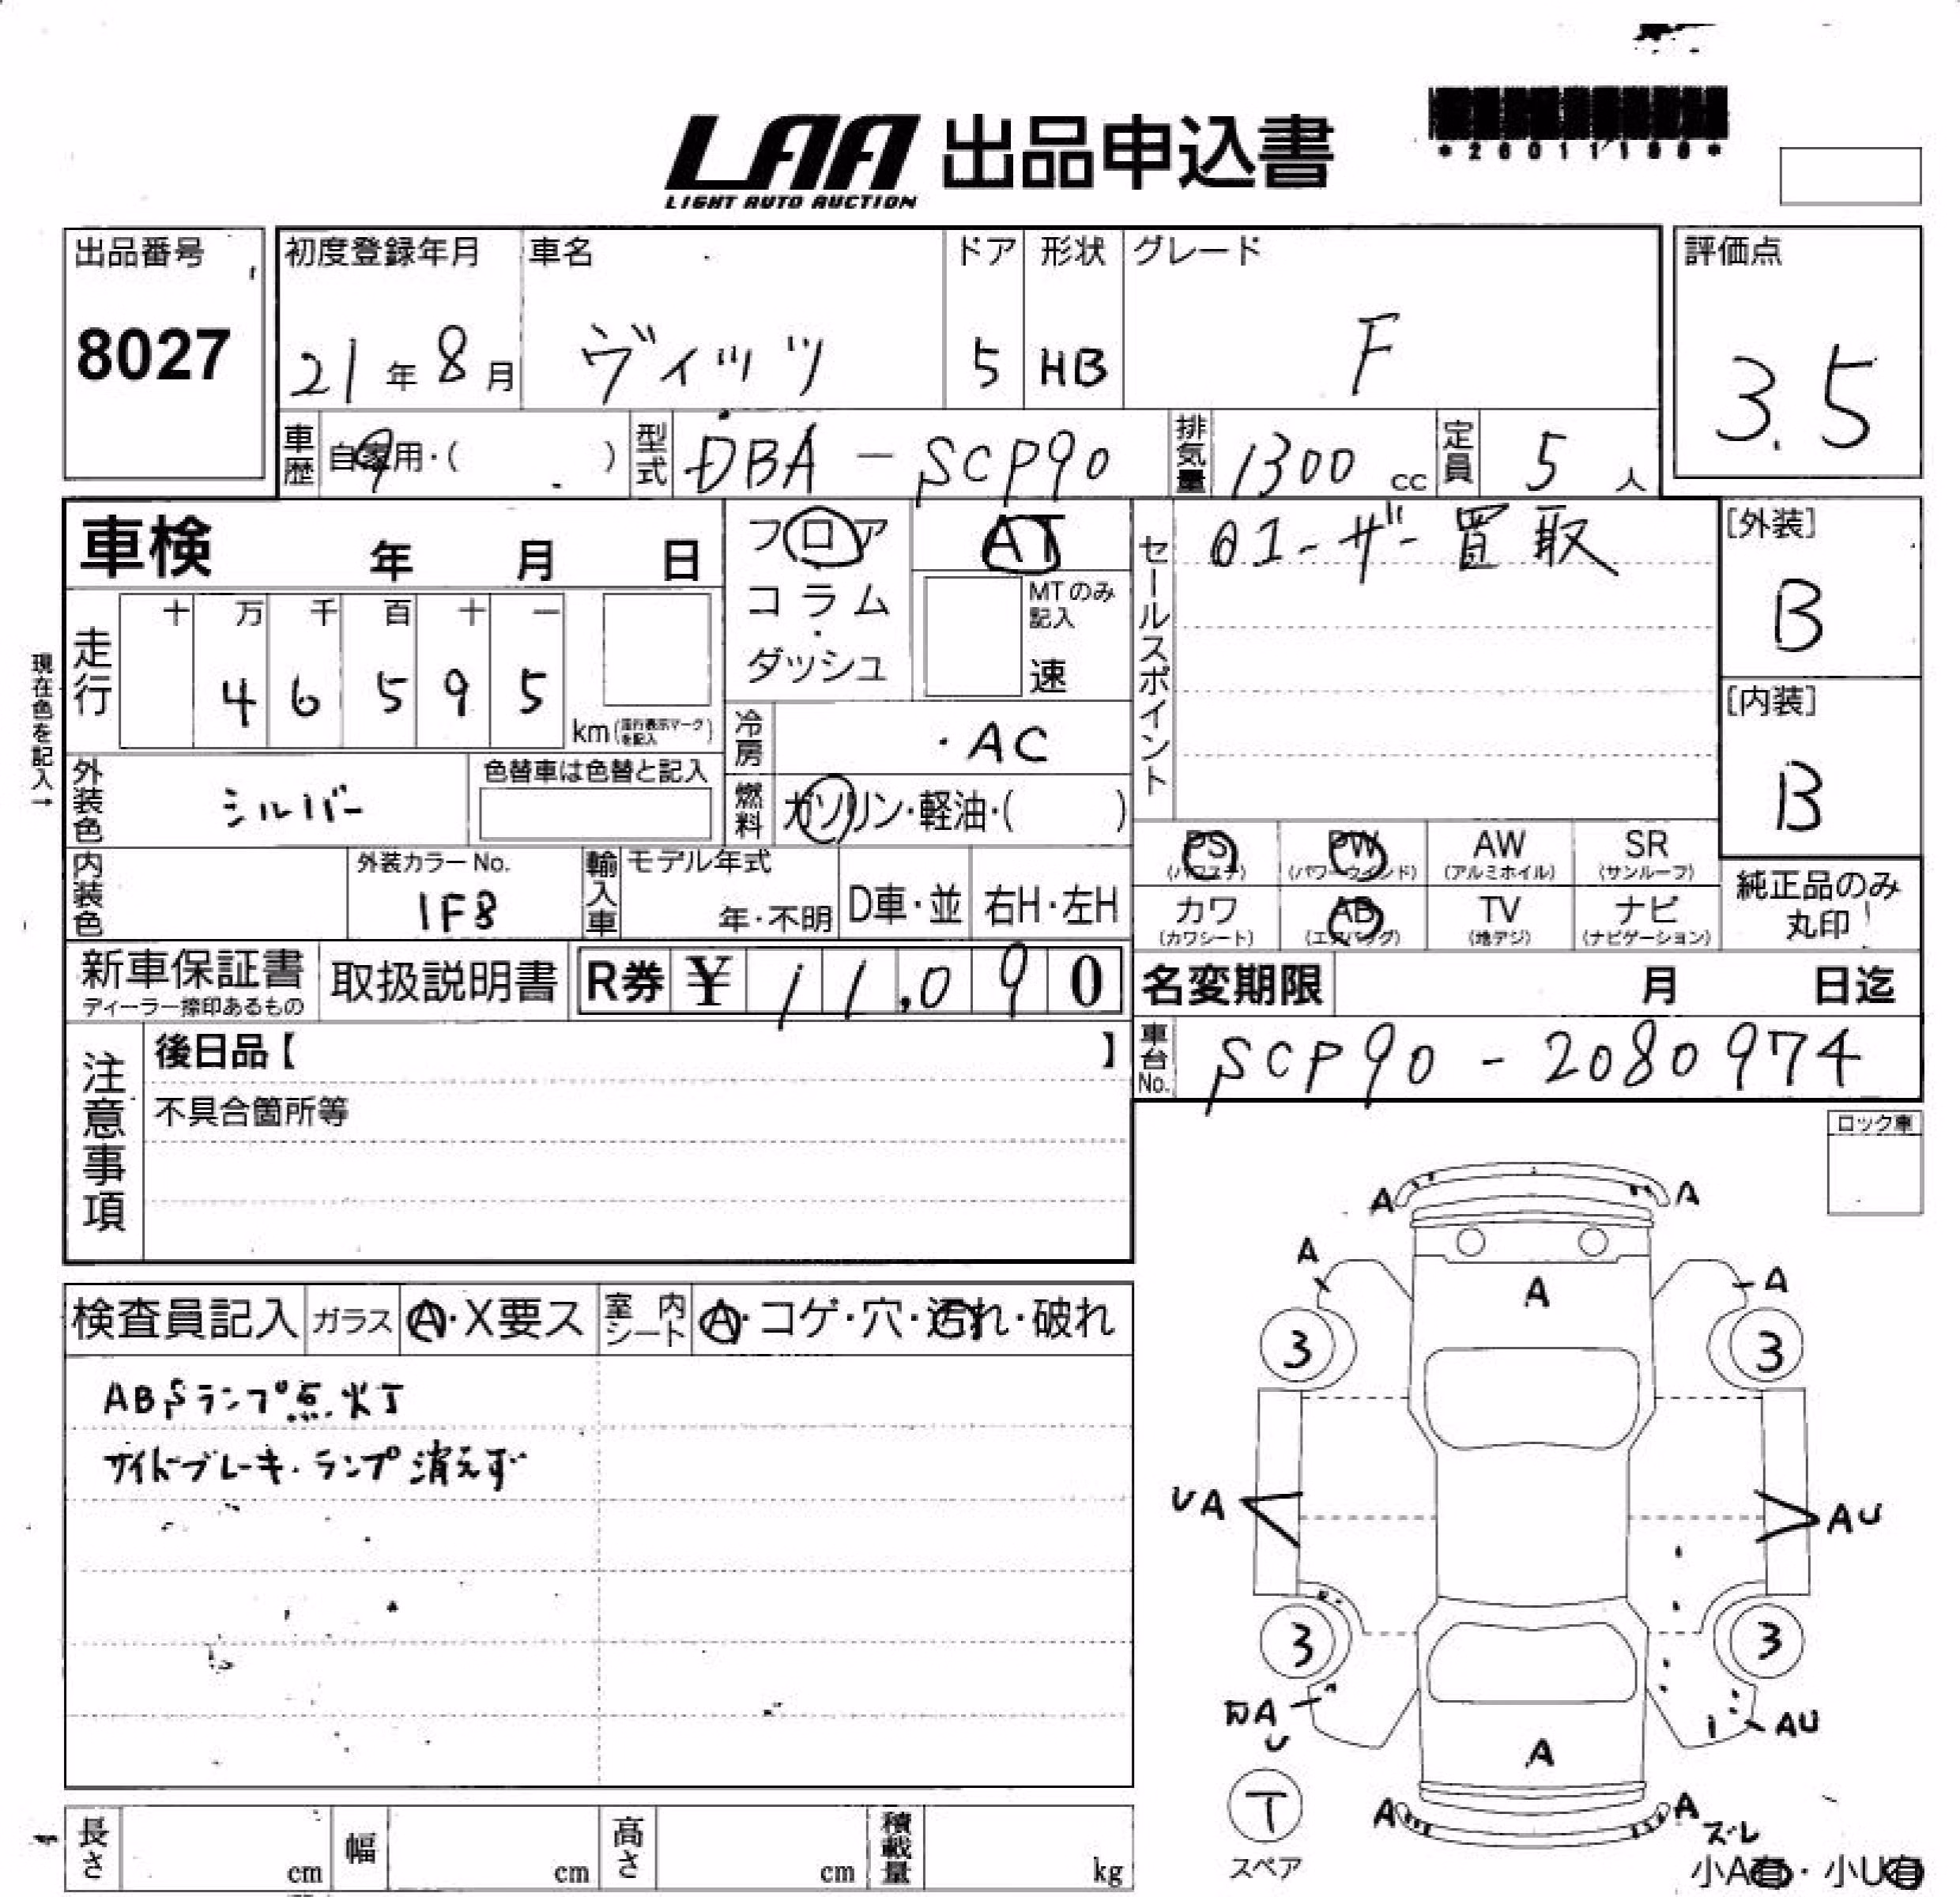 LAA 出品申込書
LIGHT AUTO AUCTION
出品番号
8027
初度登録年月
21年8月
車名
ヴィッツ
ドア
5
形状
HB
グレード
F
評価点
3.5
車歴 自家用・( )
型式 DBA-SCP90
排気量 1300cc
定員 5人
車検 年 月 日
フロア
コラム
ダッシュ
AT
MTのみ記入
速
セールスポイント
ユーザー買取
[外装]
B
[内装]
B
現在色を記入→
走行
十 万 千 百 十 一
4 6 5 9 5
km(走行表示マークを記入)
冷房 ・AC
外装色 シルバー
色替車は色替と記入
燃料 ガソリン・軽油・( )
PS (パワステ)
PW (パワーウインド)
AW (アルミホイル)
SR (サンルーフ)
カワ (カワシート)
AB (エアバッグ)
TV (地デジ)
ナビ (ナビゲーション)
純正品のみ
丸印
内装色
外装カラーNo.
1F8
輸入車
モデル年式
年・不明
D車・並
右H・左H
新車保証書
ディーラー捺印あるもの
取扱説明書
R券 ¥ 11,090
名変期限 月 日迄
車台No. SCP90-2080974
注意事項
後日品【 】
不具合箇所等
ロック車
検査員記入 ガラス A・X要ス 室内シート A・コゲ・穴・汚れ・破れ
ABSランプ点灯
サイドブレーキ・ランプ消えず
A A
A A
A
3 3
UA AU
3 3
A
U
AU
A
T
スペア
A A
ズレ
小A有・小U有
長さ cm
幅 cm
高さ cm
積載量 kg